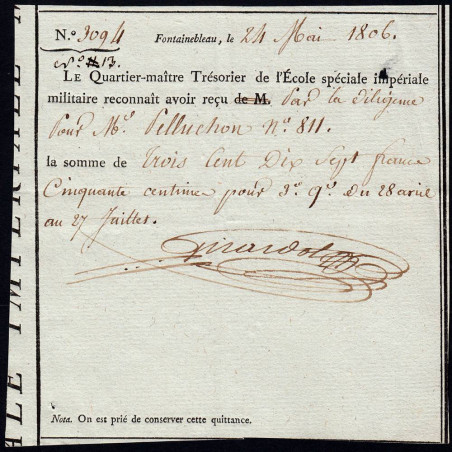 N.º 3094 Fontainebleau, le 24 Mai 1806.
Nº 13.
LE Quartier-maître Trésorier de l'École spéciale impériale
militaire reconnaît avoir reçu de M. Par la diligence
Pour Mr. Pelluchon Nº 811.
la somme de trois Cent Dix Sept francs
Cinquante centime pour 3e. qr. du 28 avril
au 27 Juillet.
Girardot
Nota. On est prié de conserver cette quittance.
ALE IMPÉRIALE